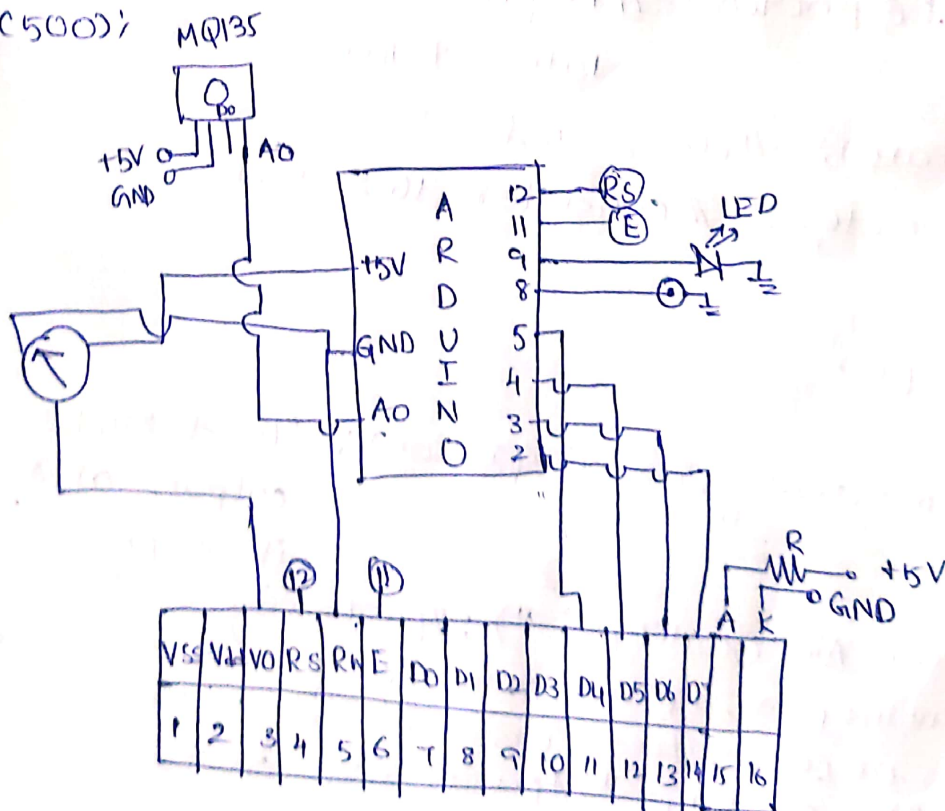 (500);
MQ135
D0
+5V
A0
GND
ARDUINO
+5V
GND
A0
12
11
9
8
5
4
3
2
RS
E
LED
12
11
R
+5V
GND
A K
VSS Vdd VO RS RW E D0 D1 D2 D3 D4 D5 D6 D7
1 2 3 4 5 6 7 8 9 10 11 12 13 14 15 16